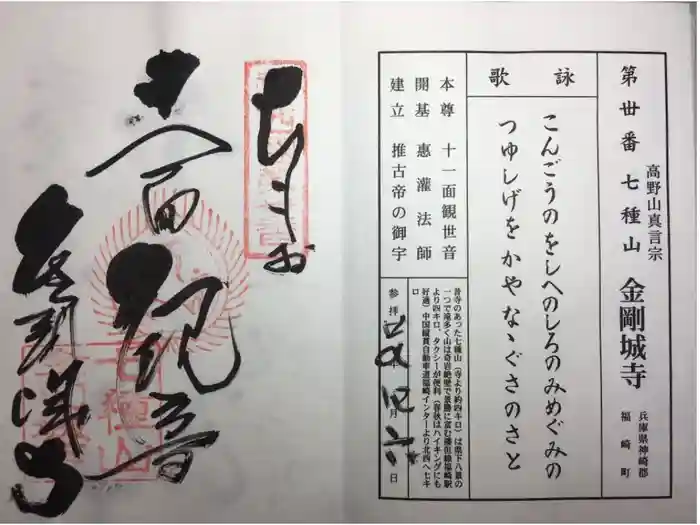 第丗番 七種山 金剛城寺
高野山真言宗
兵庫県神崎郡
福崎町
詠歌
こんごうのをしへのしろのみめぐみの
つゆしげをかやなゝぐさのさと
本尊 十一面観世音
開基 惠灌法師
建立 推古帝の御宇
昔寺のあった七種山（寺より約四キロ）は県下八景の
一つで滝多く山は奇岩絶壁で景勝に富む播但線福崎駅
より四キロ、タクシーが便利（春秋はハイキングにも
好適）中国縦貫自動車道福崎インターより北西へ七キ
ロ
参拝 年 月 日
十一面観音
金剛城寺
七種山